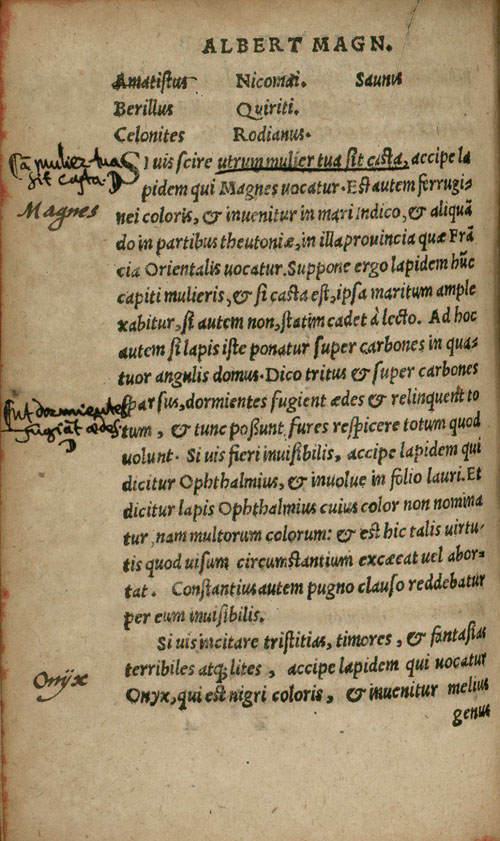 ALBERT MAGN.
Amatistus Nicomai. Saunus
Berillus Quiriti.
Celonites Rodianus.
SI uis scire utrum mulier tua sit casta, accipe la
pidem qui Magnes uocatur. Est autem ferrugi-
nei coloris, & inuenitur in mari Indico, & aliquã
do in partibus theutoniæ, in illa prouincia quæ Frã
cia Orientalis uocatur. Suppone ergo lapidem hũc
capiti mulieris, & si casta est, ipsa maritum ample
xabitur, si autem non, statim cadet à lecto. Ad hoc
autem si lapis iste ponatur super carbones in qua-
tuor angulis domus. Dico tritus & super carbones
sparsus, dormientes fugient ædes & relinquent to
tum, & tunc possunt fures respicere totum quod
uolunt. Si uis fieri inuisibilis, accipe lapidem qui
dicitur Ophthalmius, & inuolue in folio lauri. Et
dicitur lapis Ophthalmius cuius color non nomina
tur, nam multorum colorum: & est hic talis uirtu-
tis quod uisum circumstantium excæcat uel abor-
tat. Constantius autem pugno clauso reddebatur
per eum inuisibilis.
Si uis incitare tristitias, timores, & fantasias
terribiles atq; lites, accipe lapidem qui uocatur
Onyx, qui est nigri coloris, & inuenitur melius
genus
mulier tua
sit casta.
Magnes
ut dormientes
fugiãt ædes
Onyx